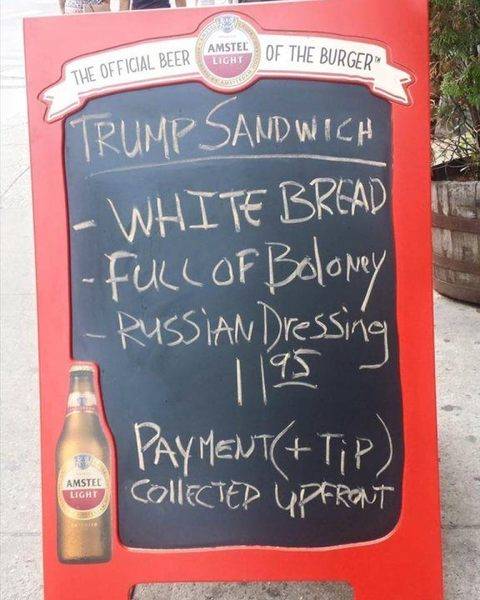 THE OFFICIAL BEER AMSTEL LIGHT OF THE BURGER™
TRUMP SANDWICH
- WHITE BREAD
- FULL OF BOLONEY
- RUSSIAN Dressing
11 95
PAYMENT (+ TiP)
COllECTED UPFRONT
AMSTEL
LIGHT